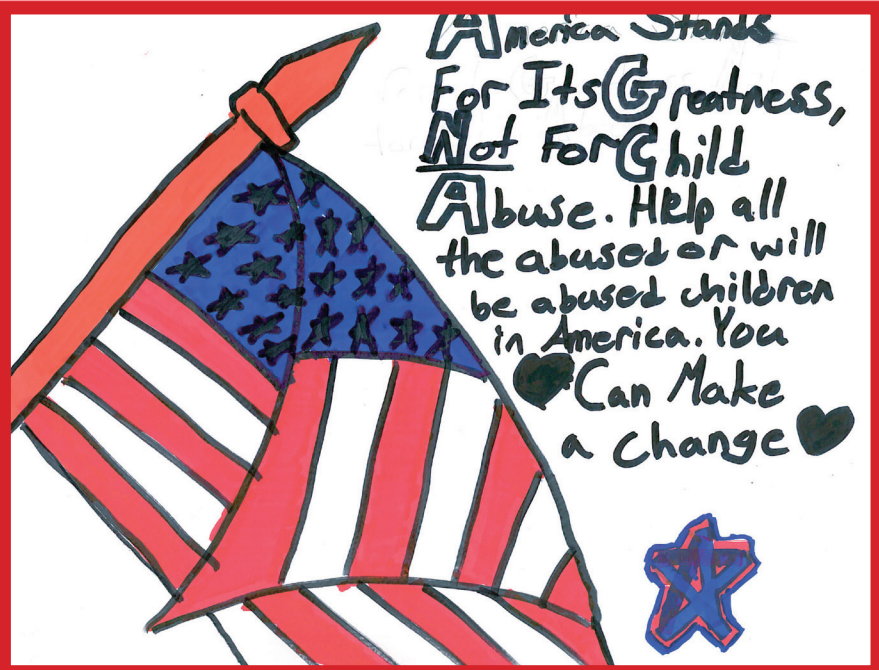 America Stands
For Its Greatness,
Not For Child
Abuse. Help all
the abused or will
be abused children
in America. You
Can Make
a change